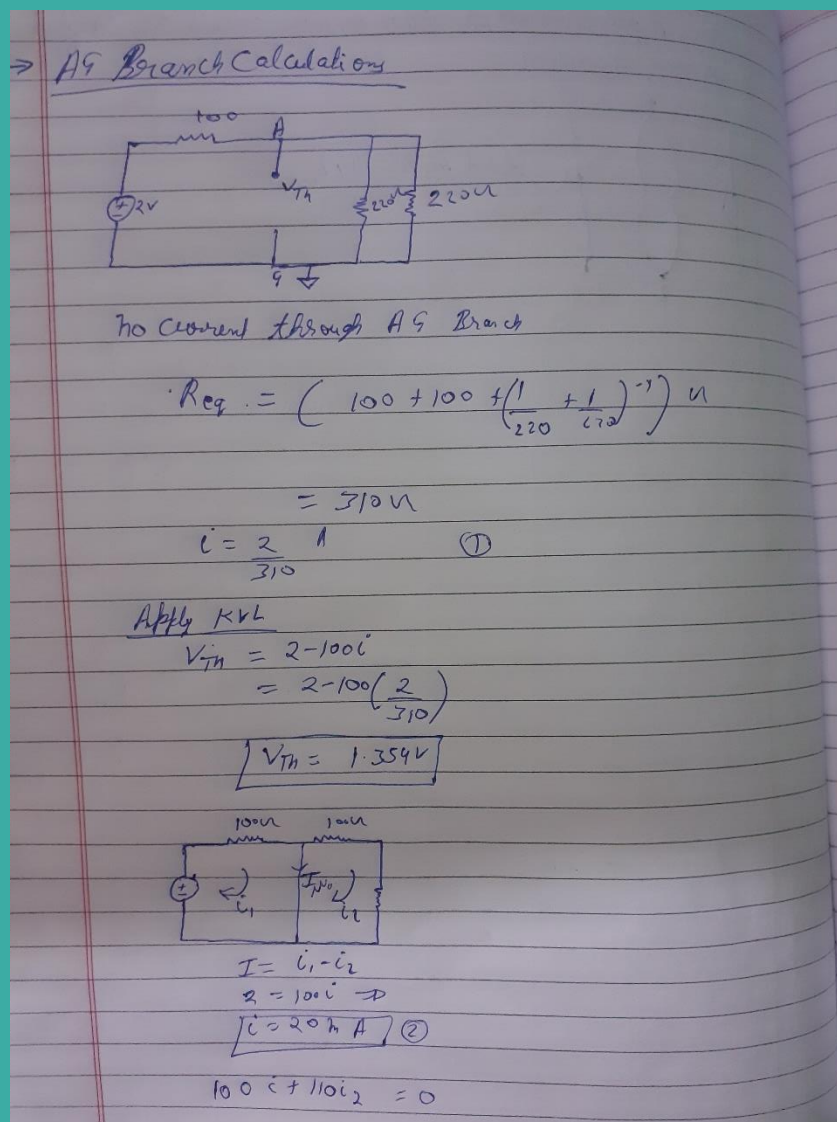 ⇒ AG Branch Calculations
100
A
VTh
2V
220u
220u
G
no current through AG Branch
Req. = ( 100 + 100 + (1/220 + 1/220)^-1 ) u
= 310u
i = 2/310 A ①
Apply KVL
VTh = 2-100i
= 2-100(2/310)
VTh = 1.354V
100u 100u
i1 i2
I = i1-i2
2 = 100i ⇒
i = 20mA ②
100i + 110i2 = 0